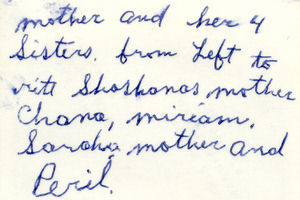 mother and her 4
Sisters. from Left to
ritt Shoshanas mother
Chana, miriam,
Sarahs mother and
Peril.